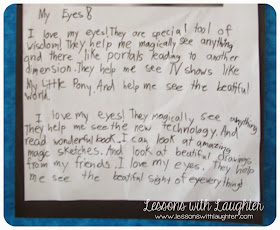 My Eyes!
I love my eyes! They are special tool of
wisdom! They help me magically see anything
and there like portals leading to another
dimension. They help me see TV shows like
My Little Pony. And help me see the beatiful
world.
I love my eyes! They magically see anything
They help me see the new technology. And
read wonderful book. I can look at amazing
magic sketches. And look at beatiful drawings
from my friends. I love my eyes. They help
me see the beatiful sight of everything!
Lessons with Laughter
www.lessonswithlaughter.com